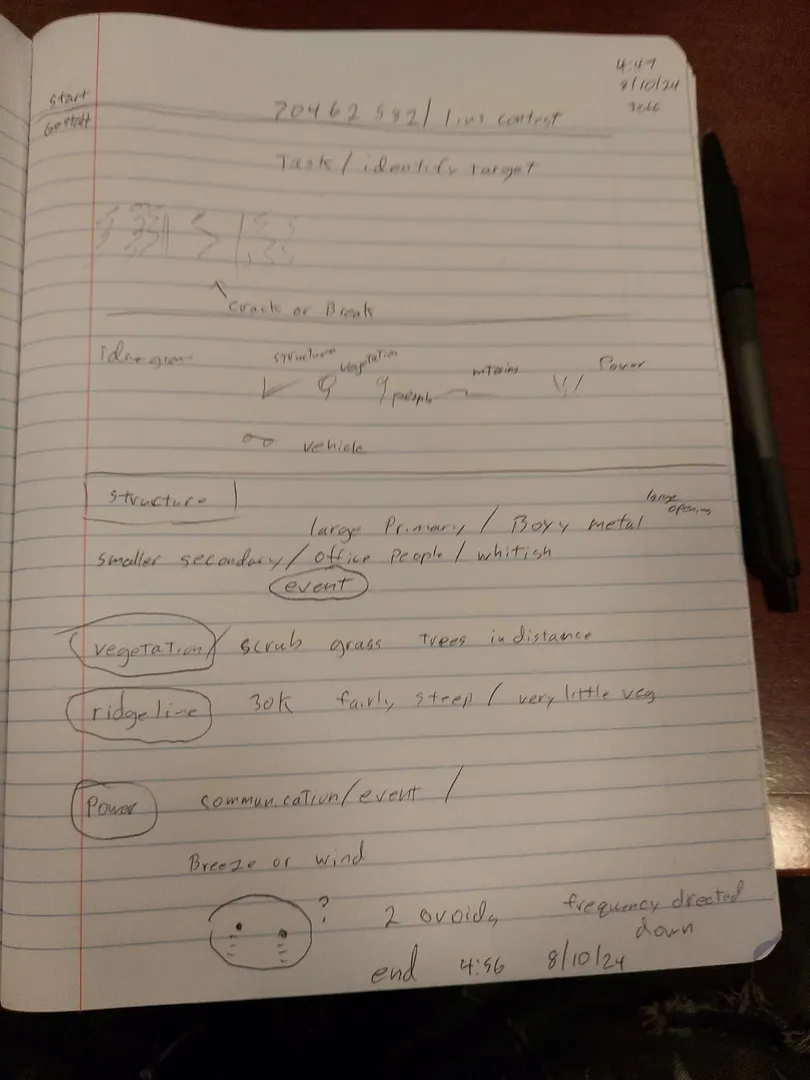 4:49
8/10/24
start
Gestalt
70462 582/ lins contest
Task / identify Target
crack or Break
structure vegetation
people
Power
vehicle
structure
large Primary / Boxy metal large opening
smaller secondary / office people / whitish
event
vegetation / scrub grass trees in distance
ridgeline 30K fairly steep / very little veg
Power communication/event /
Breeze or wind
? 2 ovoids frequency directed down
end 4:56 8/10/24